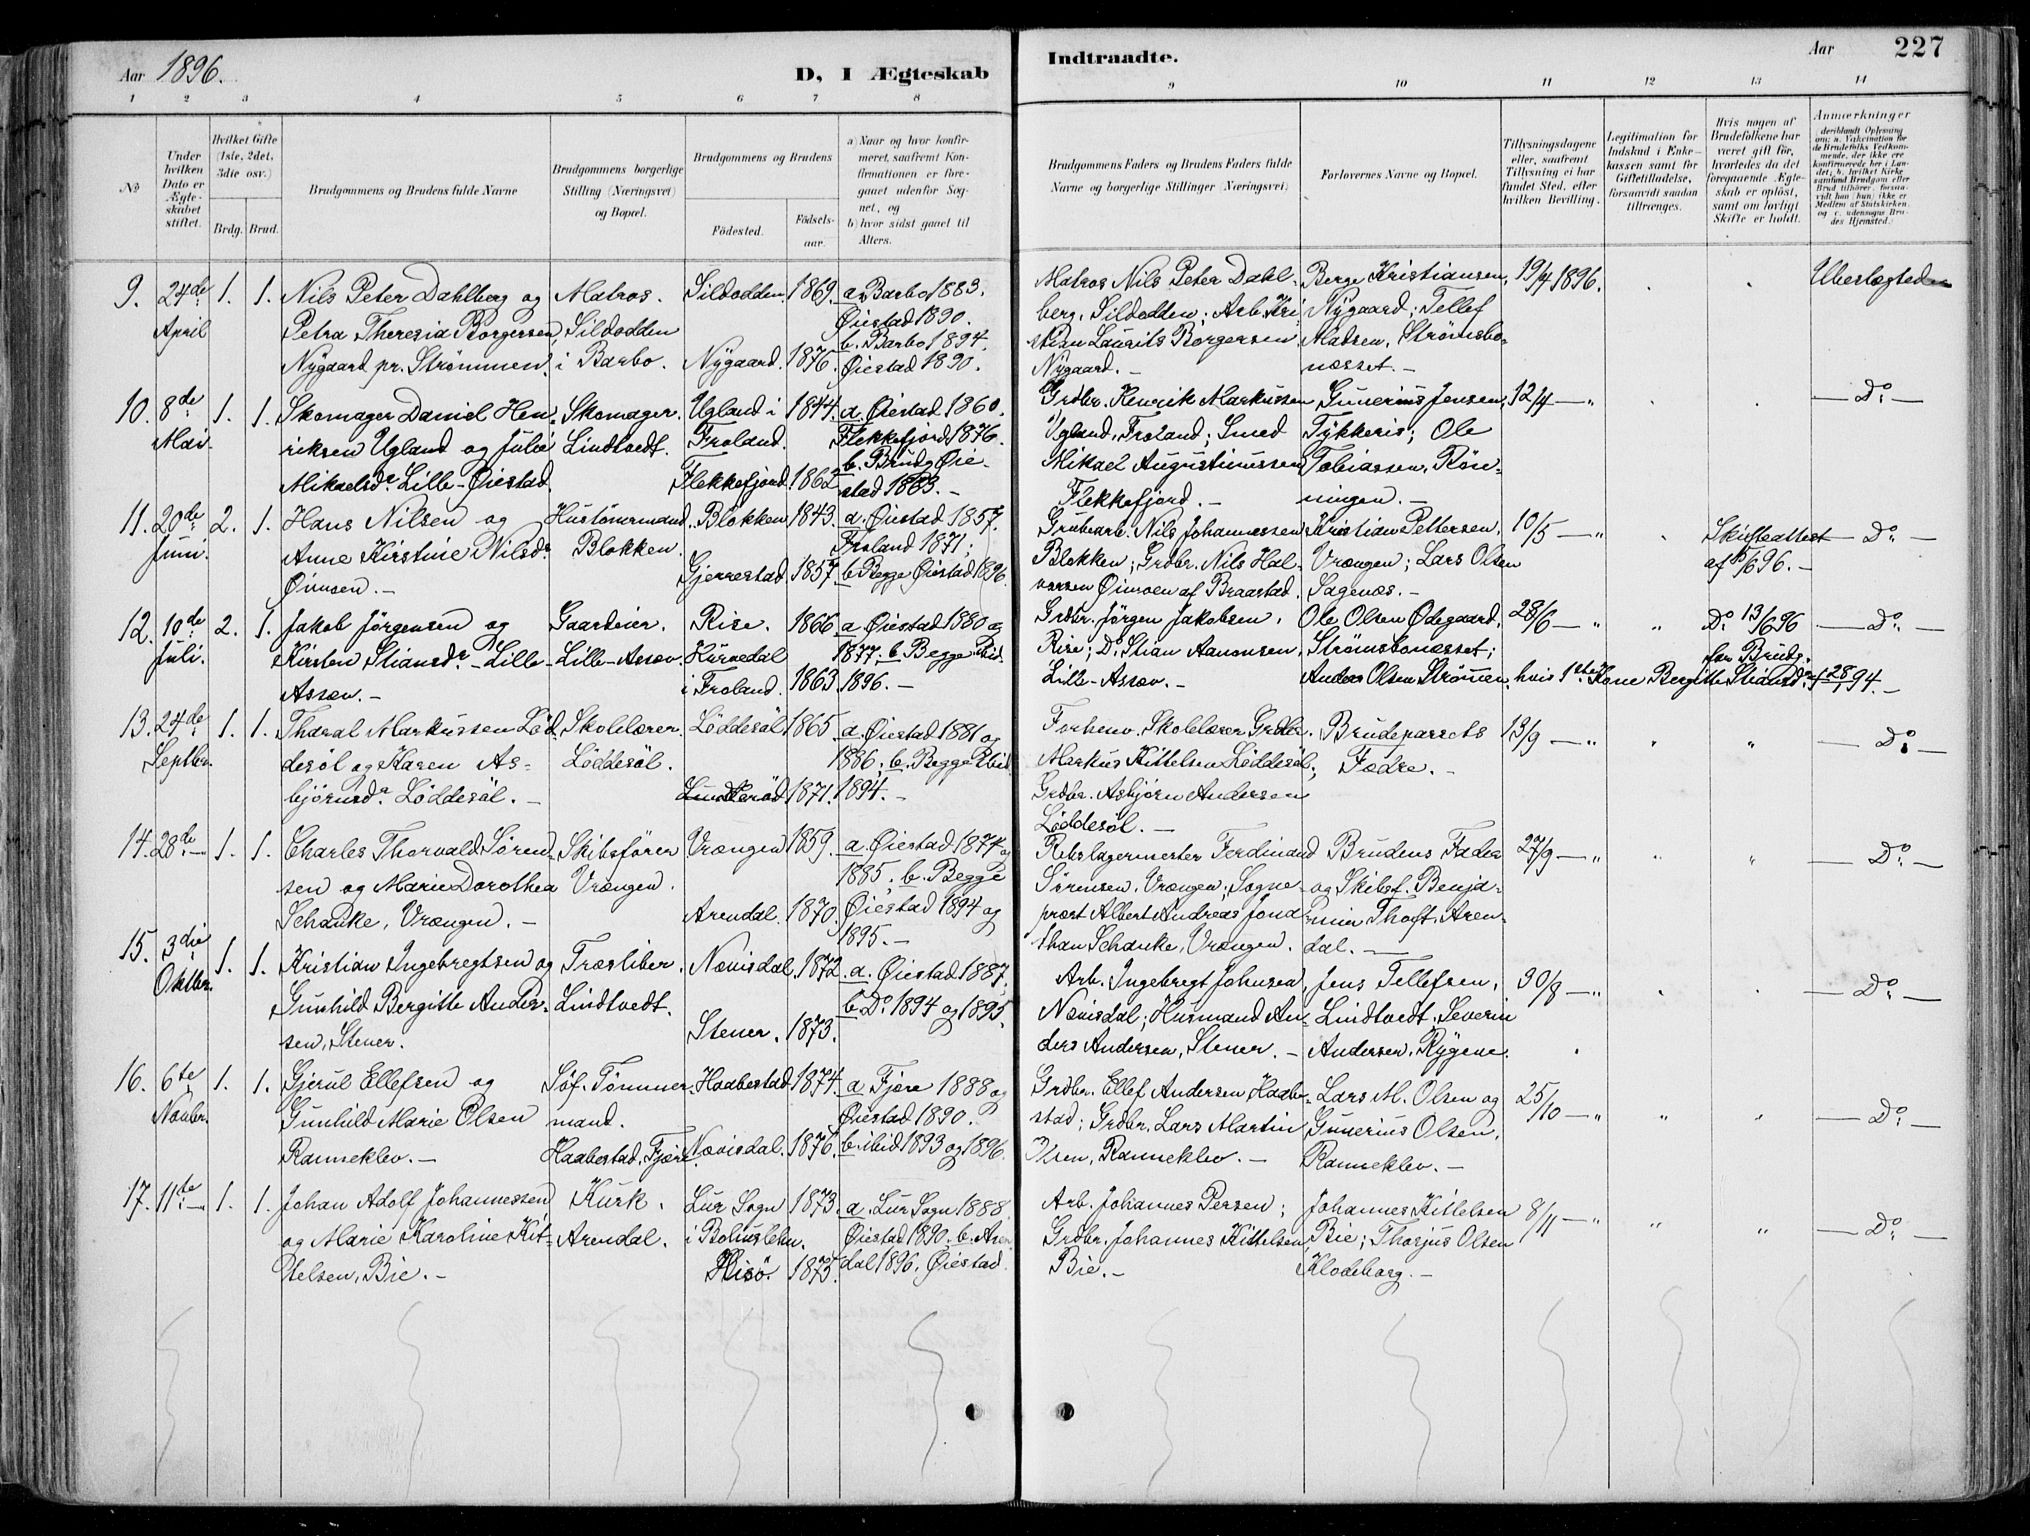 Aar 1896.
D, I Ægteskab
Indtraadte.
Aar 227
1 2 3 4 5 6 7 8
9 10 11 12 13 14
No
Under hvilken Dato er Ægteskabet stiftet.
Hvilket Gifte (1ste, 2det, 3die osv.)
Brdg. Brud.
Brudgommens og Brudens fulde Navne
Brudgommens borgerlige Stilling (Næringsvei) og Bopæl.
Brudgommens og Brudens
Födested.
Födselsaar.
a) Naar og hvor konfirmeret, saafremt Konfirmationen er foregaaet udenfor Sognet, og
b) hvor sidst gaaet til Alters.
Brudgommens Faders og Brudens Faders fulde Navne og borgerlige Stillinger (Næringsvei)
Forlovernes Navne og Bopæl.
Tillysningsdagene eller, saafremt Tillysning ei har fundet Sted, efter hvilken Bevilling.
Legitimation for Indskud i Enkekassen samt for Giftetilladelse, forsaavidt saadan tiltrænges.
Hvis nogen af Brudefolkene har været gift för, hvorledes da det foregaaende Ægteskab er oplöst, samt om lovligt Skifte er holdt.
Anmærkninger
9. 24de April 1. 1.
Nils Peter Dahlberg og
Petra Theresia Borgersen,
Nygaard pr. Strømmen.
Matros.
Sildodden
i Barbo.
Sildodden. 1869.
Nygaard. 1876.
a. Barbo 1883.
Øiestad 1890.
b. Barbo 1894.
Øiestad 1890.
Matros Nils Peter Dahl-
berg, Sildodden; Arb. Kri-
stian Laurits Borgersen
Nygaard. -
Berge Kristiansen,
Nygaard; Tellef
Madsen, Strømsbo-
næsset. -
19/4 1896.
Ubeslægtede
10. 8de Mai. 1. 1.
Skomager Daniel Hen-
riksen Ugland og Julie
Mikaelsdr. Lille-Øiestad.
Skomager.
Lindtvedt.
Ugland i
Froland.
1844.
Flekkefjord. 1862
a. Øiestad 1860.
Flekkefjord 1876.
b. Brudg Øie-
stad 1883. -
Grdbr. Henrik Markussen
Ugland, Froland; Smed
Mikael Augustinussen
Flekkefjord. -
Gunerius Jensen,
Tykkeris; Ole
Tobiassen, Røn-
ningen. -
12/4 - "
- Do. -
11. 20de Juni. 2. 1.
Hans Nilsen og
Anne Kirstine Nilsdr.
Øimoen. -
Husmand.
Blokken.
Blokken 1843.
Gjerrestad. 1857
a. Øiestad 1857.
Froland 1871;
b. Begge Øiestad 1896.
Grubearb. Nils Johannessen
Blokken; Grdbr. Nils Hal-
vorsen Øimoen af Braastad.
Kristian Pettersen,
Vrængen; Lars Olsen
Sagenæs. -
10/5 - "
Skifteattest
- Do. -
12. 10de Juli. 2. 1.
Jakob Jørgensen og
Kirsten Stiansdr. - Lille-
Assæv. -
Gaardeier.
Lille-Assæv.
Rise. 1866
Hurvedal
i Froland. 1863.
a. Øiestad 1880 og
1877. b. Begge ibid.
1896. -
Grdbr. Jørgen Jakobsen,
Rise; Do. Stian Aanonsen,
Lille-Assæv. -
Ole Olsen Ødegaard,
Strømsbonæsset;
Anders Olsen Strømen.
28/6 - "
Do. 13/6 96
for Brudg.
hvis 1ste Kone Bergitte Stiansdr. † 28/1 94. -
- Do. -
13. 24de Septbr. 1. 1.
Tharal Markussen Lød-
desøl og Karen As-
bjørnsdr. Løddesøl. -
Skolelærer.
Løddesøl.
Løddesøl 1865
Lundterød 1871.
a. Øiestad 1881 og
1886. b. Begge Ibid.
1894. -
Forhenv. Skolelærer Grdbr.
Markus Kittelsen Løddesøl;
Grdbr. Asbjørn Andersen
Løddesøl. -
Brudeparrets
Fædre. -
13/9 - "
- Do. -
14. 28de - 1. 1.
Charles Thorvald Søren-
sen og Marie Dorothea
Schanke, Vrængen. -
Skibsfører
Vrængen.
Vrængen 1859.
Arendal. 1870.
a. Øiestad 1874 og
1885. b. Begge
Øiestad 1894 og
1895. -
Rebslagermester Ferdinand
Sørensen, Vrængen; Sogne-
præst Albert Andreas Jona-
than Schanke, Vrængen.
Brudens Fader
og Skibsf. Benja-
min Thoft, Aren-
dal. -
27/9 - "
- Do. -
15. 3die Oktbr. 1. 1.
Kristian Ingebregtsen og
Gunhild Bergitte Ander-
sen, Stener.
Træsliber.
Lindtvedt.
Nævisdal. 1872.
Stener. 1873.
a. Øiestad 1887,
b. Do. 1894 og 1895.
Arb. Ingebregt Johnsen,
Nævisdal; Husmand An-
ders Andersen, Stener. -
Jens Tellefsen,
Lindtvedt. Severin
Andersen, Rygene.
30/8 - "
- Do. -
16. 6te Novbr. 1. 1.
Gjerul Ellefsen og
Gunhild Marie Olsen
Ranneklev. -
Søf. Tømmer-
mand.
Haabestad, Fjære.
Haabestad 1874.
Nævisdal. 1876.
a. Fjære 1888 og
Øiestad 1890.
b. ibid 1893 og 1896.
Grdbr. Ellef Andersen Haabe-
stad; Grdbr. Lars Martin
Olsen, Ranneklev. -
Lars M. Olsen og
Gunerius Olsen,
Ranneklev. -
25/10 - "
- Do. -
17. 11te - 1. 1.
Johan Adolf Johannessen
og Marie Karoline Kit-
telsen, Bie. -
Kusk.
Arendal.
Lur Sogn
i Bohuslehn.
1873.
Hisö. 1875.
a. Lur Sogn 1888.
Øiestad 1890. b. Aren-
dal 1896. Øiestad
Arb. Johannes Persen;
Grdbr. Johannes Kittelsen,
Bie. -
Johannes Kittelsen
Bie; Thorjus Olsen
Klodeborg. -
8/11 - "
- Do. -